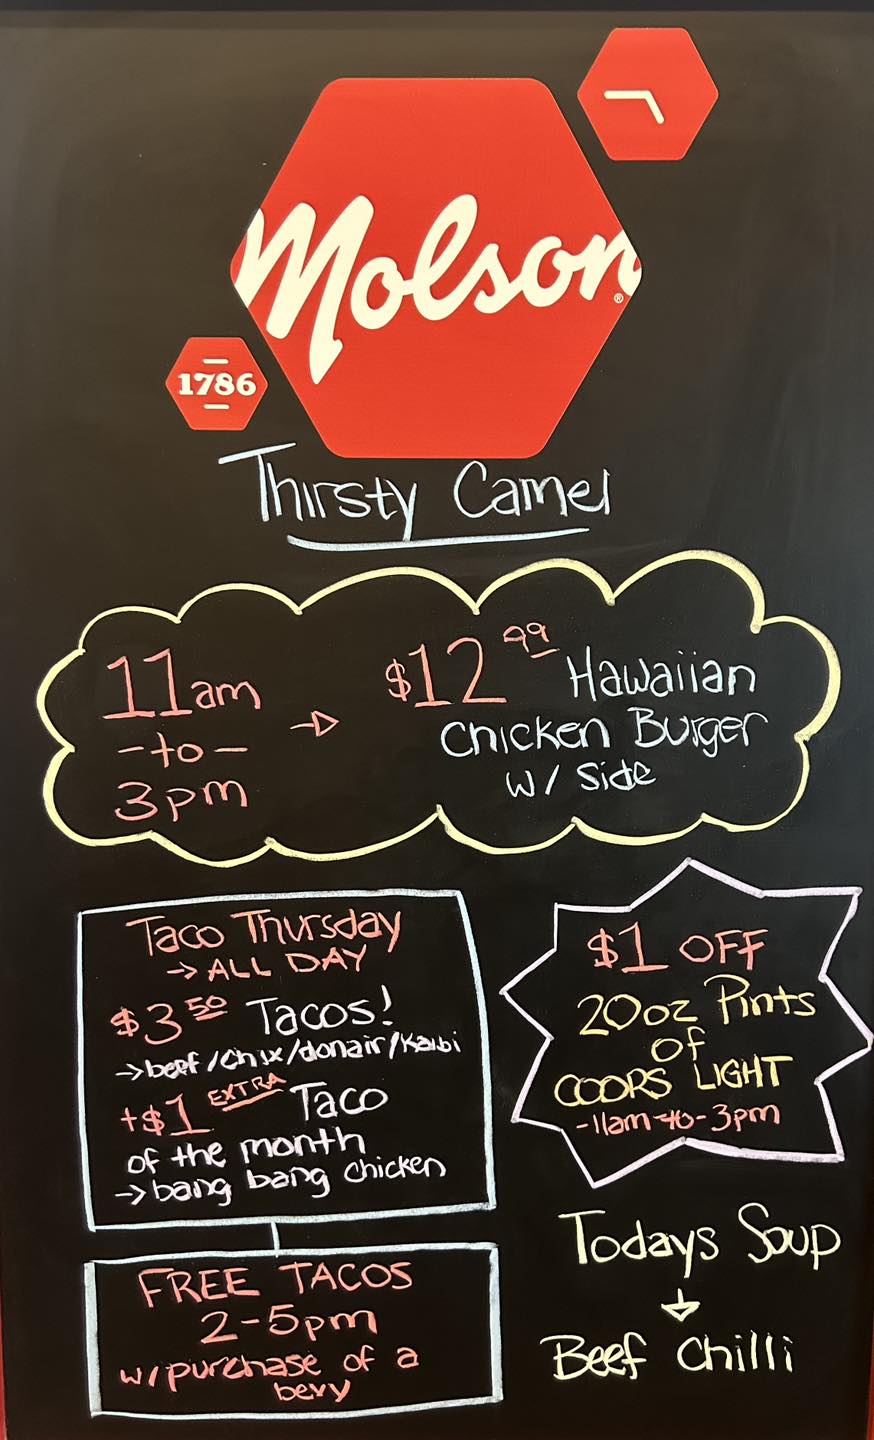 Molson®
1786
Thirsty Camel
11am
-to-
3pm
→ $12.99 Hawaiian
Chicken Burger
w/ Side
Taco Thursday
→ ALL DAY
$3.50 Tacos!
→ beef/chix/donair/Kalbi
+$1 EXTRA Taco
of the month
→ bang bang chicken
FREE TACOS
2-5pm
w/purchase of a
bevy
$1 OFF
20oz Pints
of
COORS LIGHT
-11am-to-3pm
Todays Soup
↓
Beef Chilli